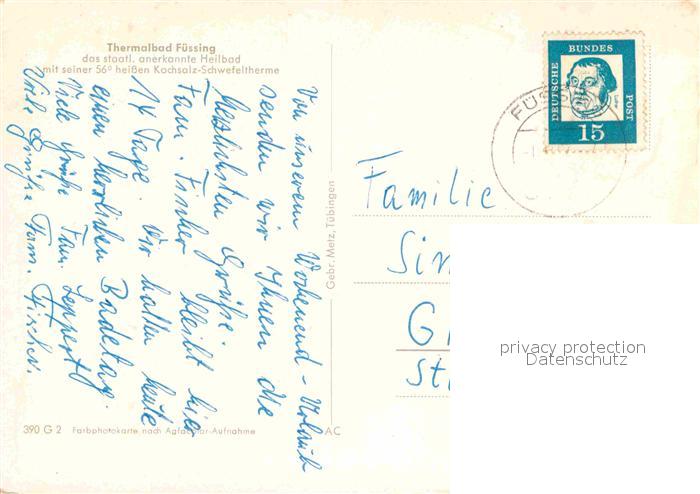 Thermalbad Füssing
das staatl. anerkannte Heilbad
mit seiner 56° heißen Kochsalz-Schwefeltherme
Von unserem Wochenend-Urlaub
senden wir Ihnen die
herzlichsten Grüße.
Fam. Fischer bleibt hier
14 Tage. Wir hatten heute
einen herrlichen Badetag.
Viele Grüße Fam. Leppert
Viele Grüße Fam. Fischer.
Gebr. Metz, Tübingen
390 G 2 Farbphotokarte nach Agfacolor-Aufnahme
AC
DEUTSCHE BUNDES POST
15
FÜS
Familie
Sin
G
St
privacy protection
Datenschutz